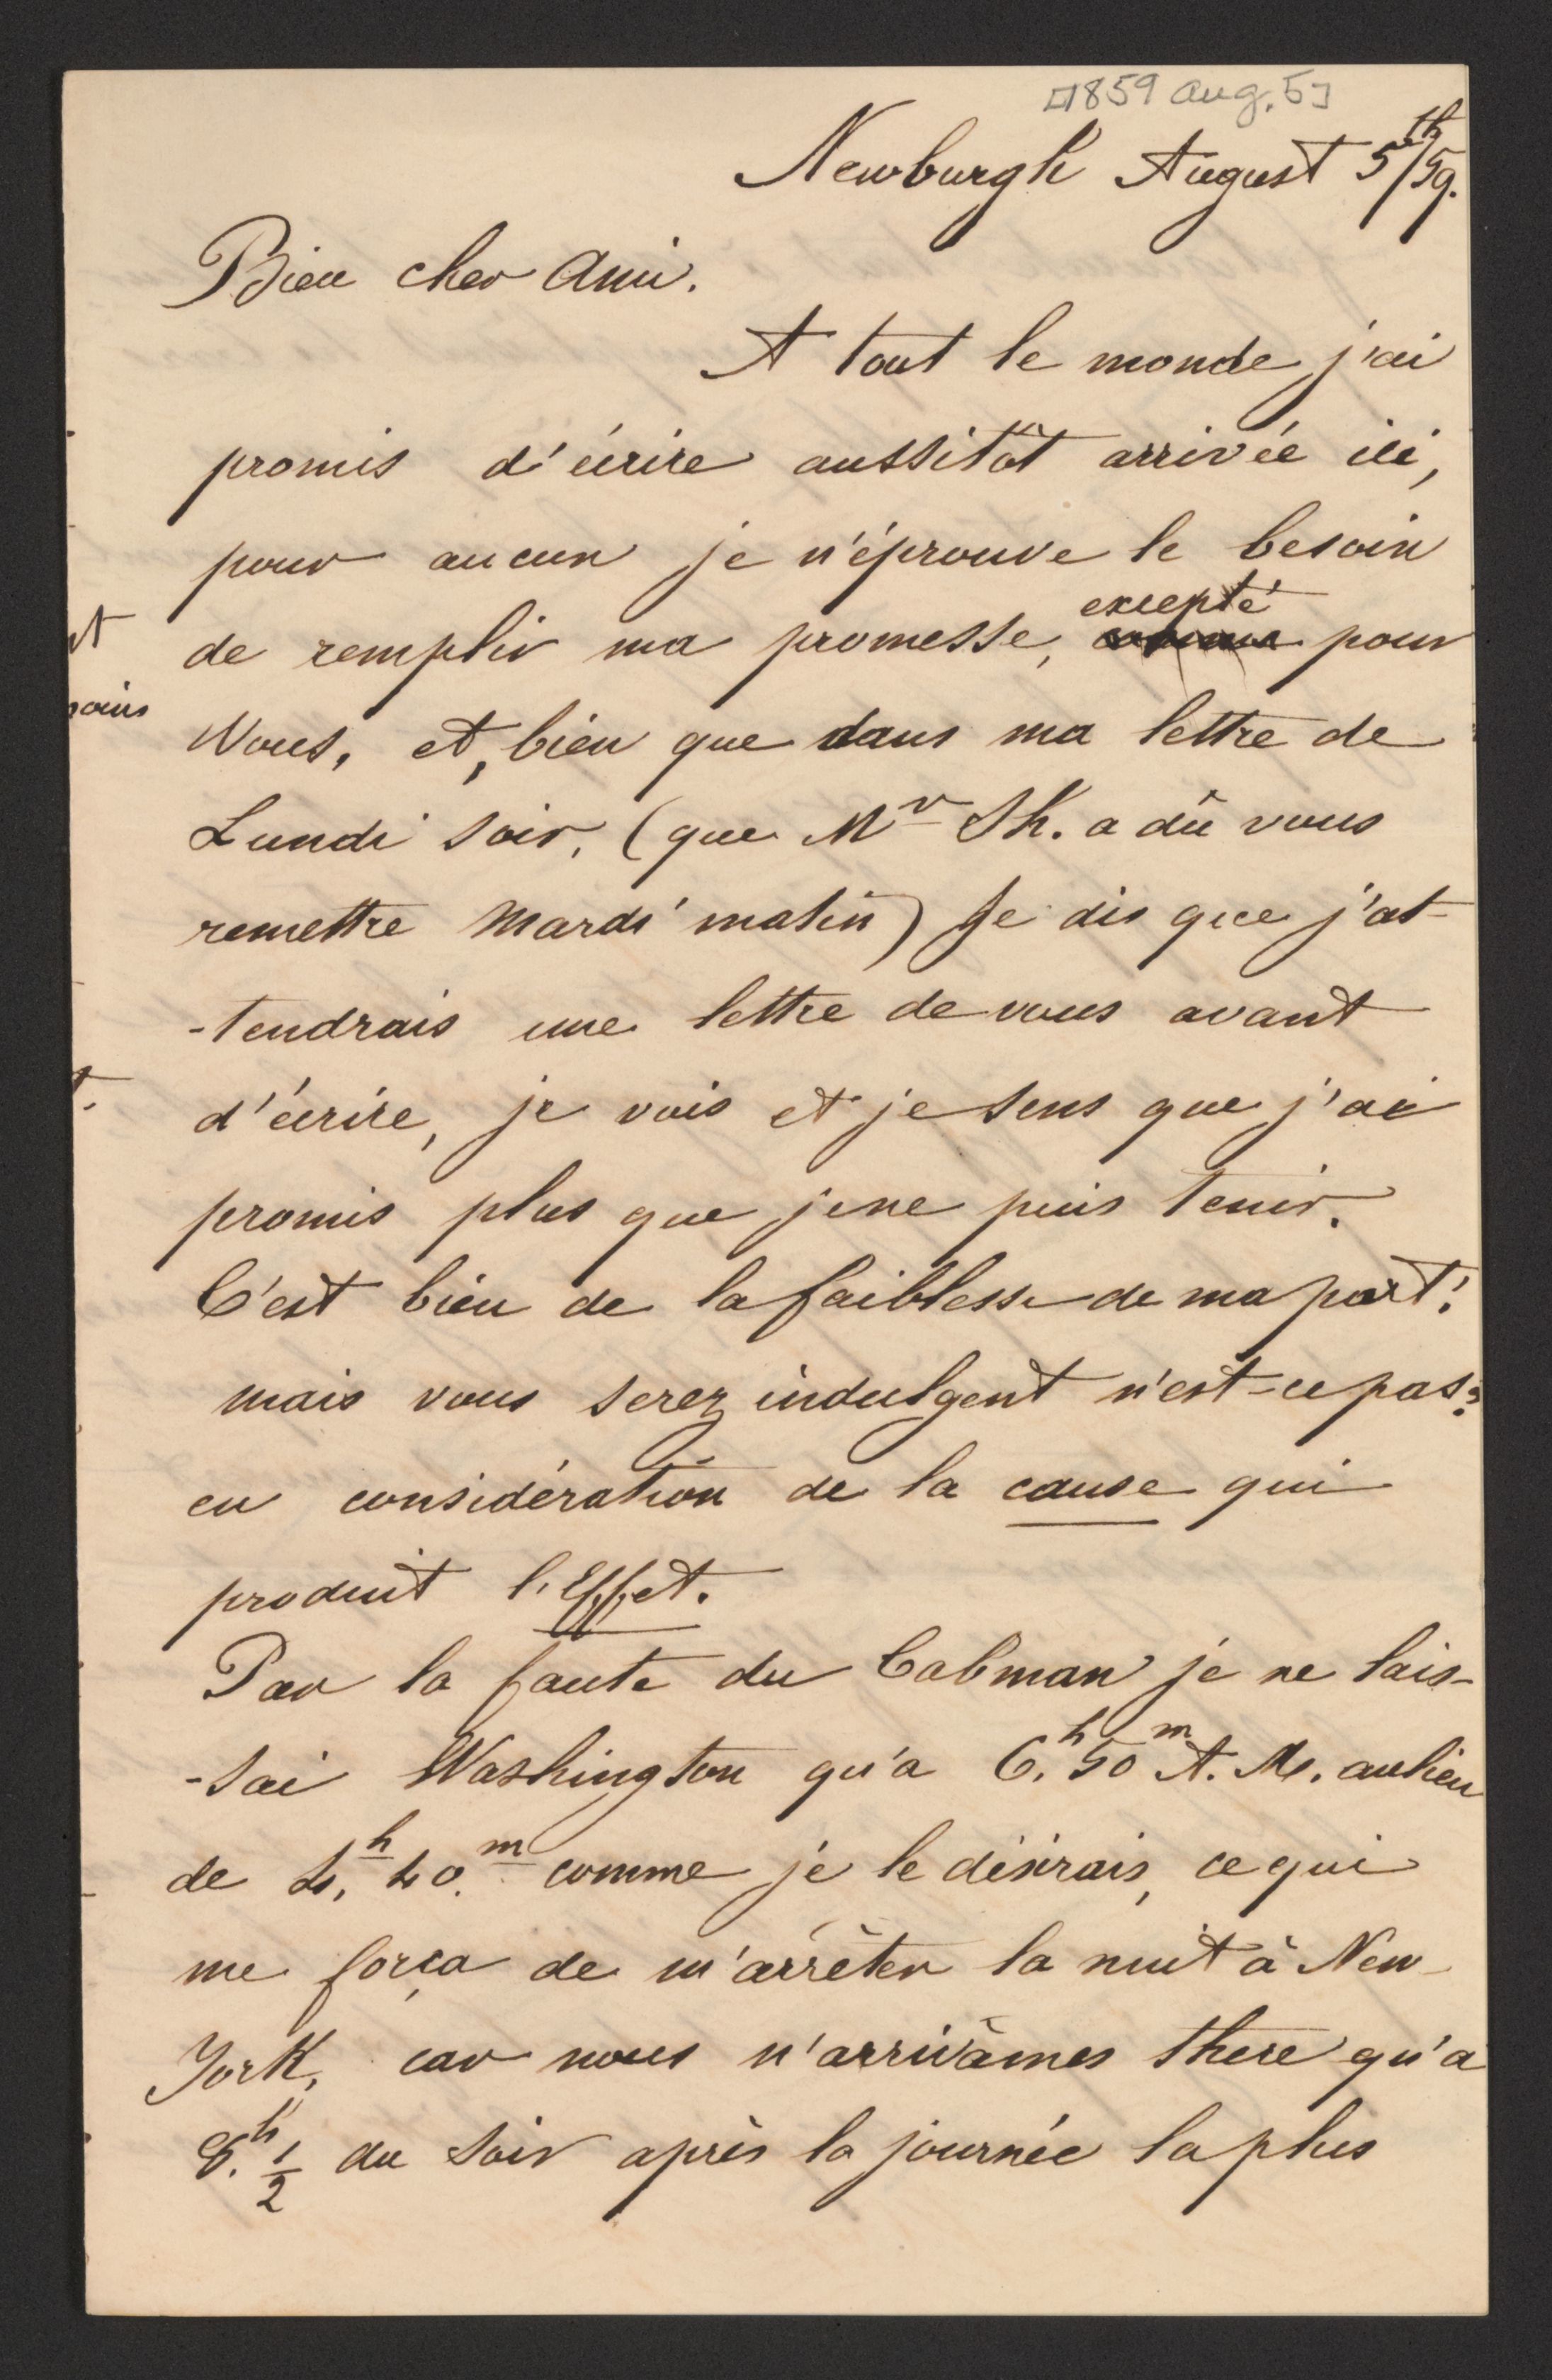 [1859 Aug. 5]
Newburgh August 5th/59.
Bien cher Ami.
A tout le monde j'ai
promis d'écrire aussitôt arrivée ici,
pour aucun je n'éprouve le besoin
excepté
de remplir ma promesse, pour
Vous, et, bien que dans ma lettre de
Lundi soir, (que Mr Sh. a dû vous
remettre Mardi matin) Je dis que j'at-
-tendrais une lettre de vous avant
d'écrire, je vois et je sens que j'ai
promis plus que je ne puis tenir.
C'est bien de la faiblesse de ma part!
mais vous serez indulgent n'est-ce pas?
en considération de la cause qui
produit l'Effet.
Par la faute du Cabman je ne lais-
-sai Washington qu'a 6.h 50m A. M. au lieu
de 4.h 40.m comme je le désirais, ce qui
me força de m'arrêter la nuit à New-
York, car nous n'arrivâmes there qu'a
8.h 1/2 du soir après la journée la plus